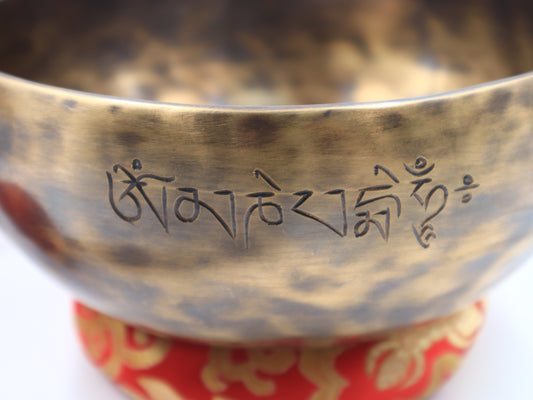 ཨོཾ མ ཎི པ དྨེ ཧཱུྃ༔